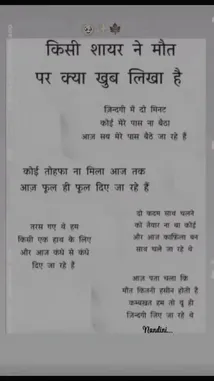 किसी शायर ने मौत
पर क्या खुब लिखा है
ज़िन्दगी में दो मिनट
कोई मेरे पास ना बैठा
आज सब मेरे पास बैठे जा रहे हैं
कोई तोहफा ना मिला आज तक
आज़ फूल ही फूल दिए जा रहे हैं
तरस गए थे हम
किसी एक हाथ के लिए
और आज कंधे से कंधे
दिए जा रहे हैं
दो कदम साथ चलने
को तैयार ना था कोई
और आज काफ़िला बन
साथ चले जा रहे थे
आज़ पता चला कि
मौत कितनी हसीन होती है
कम्बख़्त हम तो यू ही
ज़िन्दगी जिए जा रहे थे
Nandini...